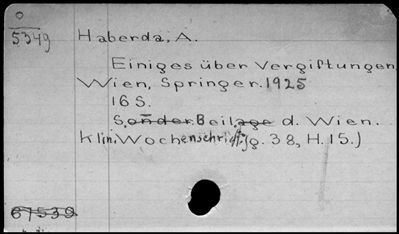 O
5349
Haberda, A.
Einiges über Vergiftungen
Wien, Springer. 1925
16 S.
Sonder. Beilage d. Wien.
Klin. Wochenschrift, Jg. 38, H. 15.)
67539